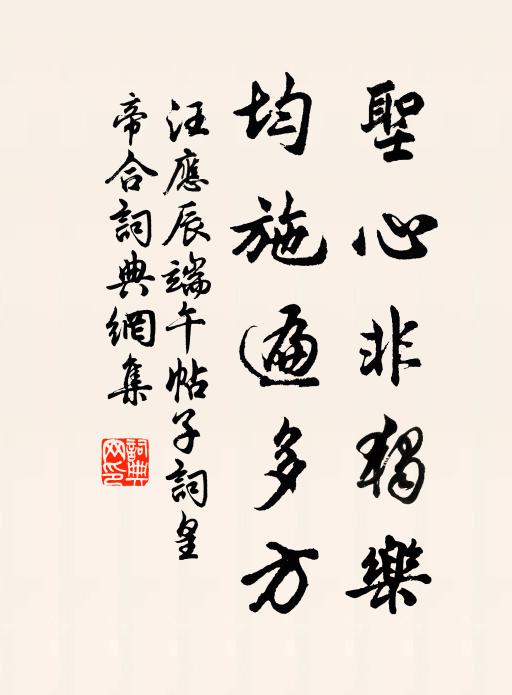 聖心非獨樂
均施遍多方
汪應辰端午帖子詞皇
帝合詞典網集
詞典
网印